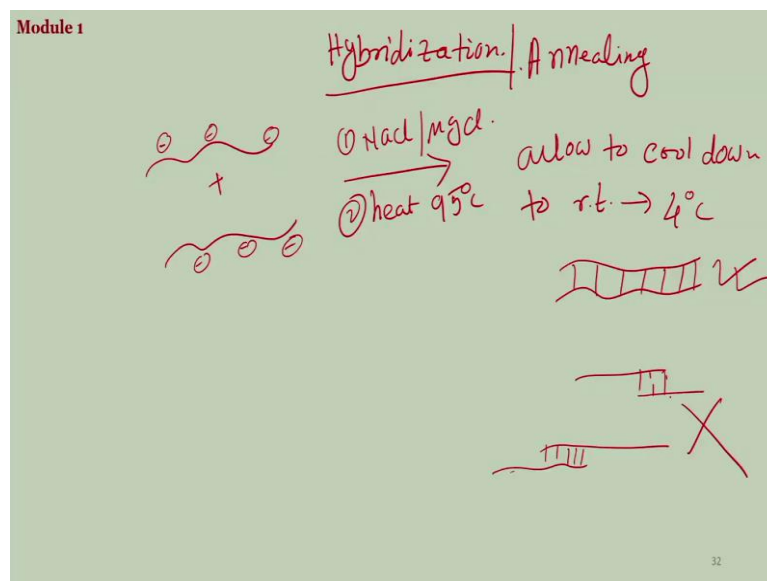 Module 1
Hybridization./.Annealing
① Nacl/Mgcl.
② heat 95°C
allow to cool down
to r.t. → 4°C
32